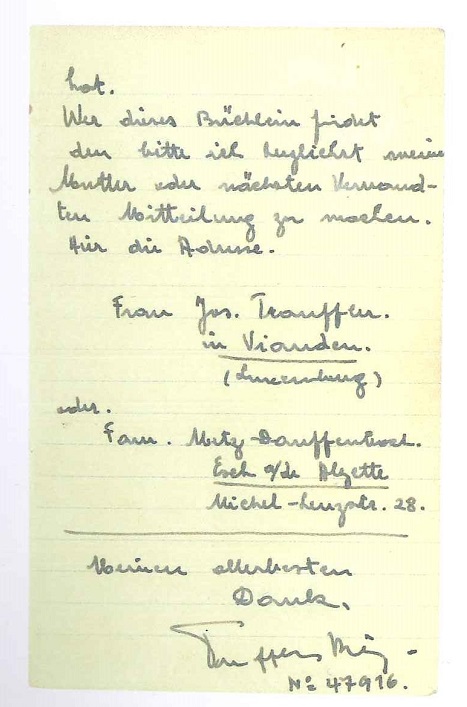 hat.
Wer dieses Büchlein findet
den bitte ich herzlichst meine
Mutter oder nächsten Verwand-
ten Mitteilung zu machen.
Hier die Adresse.
Frau Jos. Trauffler.
in Vianden.
(Luxemburg)
oder.
Fam. Metz-
Esch a/de Alzette
Michel-Lenzstr. 28.
Meinen allerbesten
Dank.
No 47916.